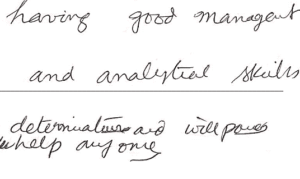 having good managent
and analytial skills
determination and will power
help any one